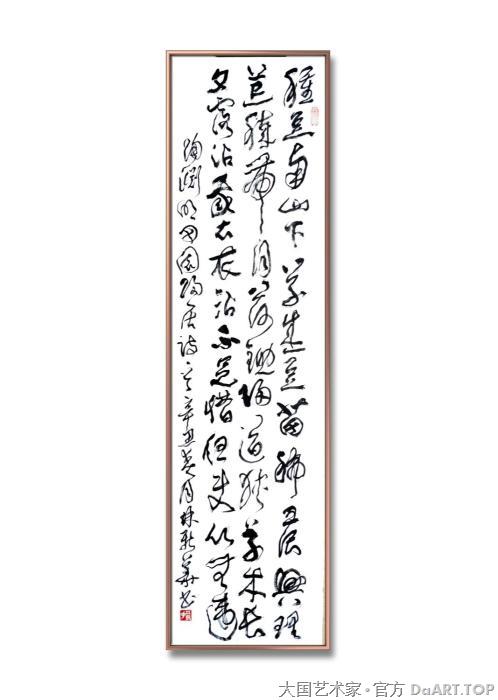 種豆南山下草盛豆苗稀晨興理
荒穢帶月荷鋤歸道狹草木長
夕露沾我衣衣沾不足惜但使願無違
陶淵明田園歸居詩之一辛丑 月林新華書
大国艺术家·官方 DaART.TOP